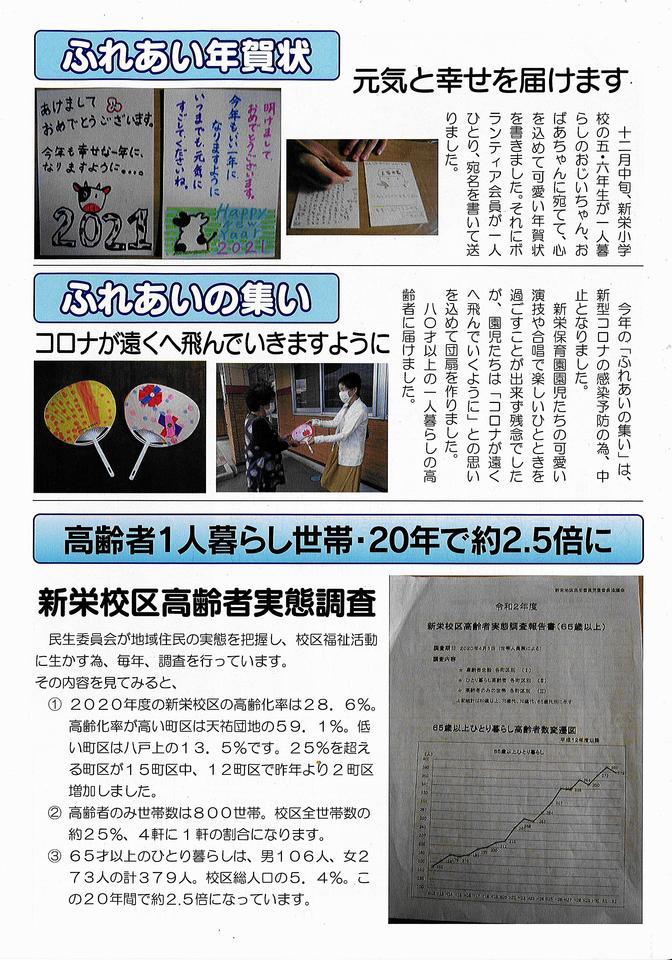 ふれあい年賀状
元気と幸せを届けます
あけまして
おめでとうございます。
今年も幸せな一年に、
なりますように・・・。
2021
明けまして
おめでとうございます。
今年もいい一年に
なりますように
いつまでも元気に
すごしてくださいね。
Happy
New
Year
2021
十二月中旬、新栄小学
校の五・六年生が一人暮
らしのおじいちゃん、お
ばあちゃんに宛てて、心
を込めて可愛い年賀状
を書きました。それにボ
ランティア会員が一人
ひとり、宛名を書いて送
りました。
ふれあいの集い
コロナが遠くへ飛んでいきますように
今年の「ふれあいの集い」は、
新型コロナの感染予防の為、中
止となりました。
新栄保育園園児たちの可愛い
演技や合唱で楽しいひとときを
過ごすことが出来ず残念でした
が、園児たちは「コロナが遠く
へ飛んでいくように」との思い
を込めて団扇を作りました。
八〇才以上の一人暮らしの高
齢者に届けました。
高齢者1人暮らし世帯・20年で約2.5倍に
新栄校区高齢者実態調査
民生委員会が地域住民の実態を把握し、校区福祉活動
に生かす為、毎年、調査を行っています。
その内容を見てみると、
① 2020年度の新栄校区の高齢化率は28.6%。
高齢化率が高い町区は天祐団地の59.1%。低
い町区は八戸上の13.5%です。25%を超え
る町区が15町区中、12町区で昨年より2町区
増加しました。
② 高齢者のみ世帯数は800世帯。校区全世帯数の
約25%、4軒に1軒の割合になります。
③ 65才以上のひとり暮らしは、男106人、女2
73人の計379人。校区総人口の5.4%。こ
の20年間で約2.5倍になっています。
新栄地区民生委員児童委員協議会
令和2年度
新栄校区高齢者実態調査報告書(65歳以上)
調査期日 2020年4月1日
調査内容
65歳以上ひとり暮らし高齢者数変遷図
平成12年度以降
65歳以上ひとり暮らし